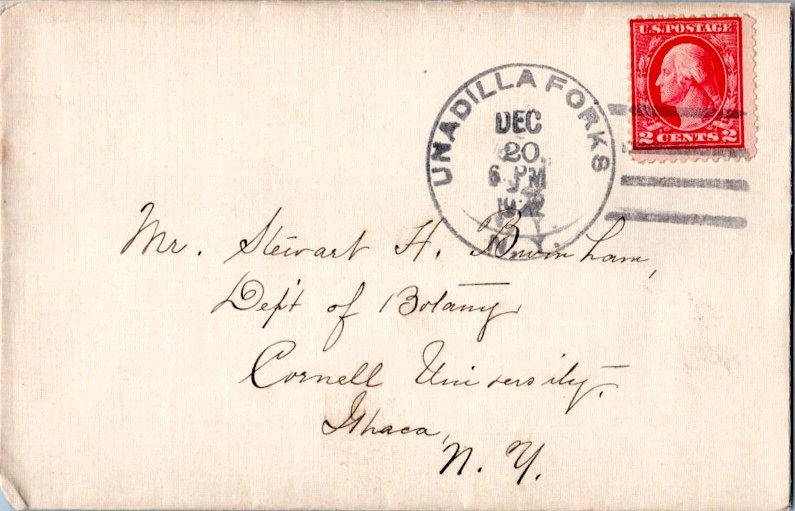 U.S. POSTAGE
2 CENTS 2
UNADILLA FORKS
DEC
20
6 PM
N.Y.
Mr. Stewart H. Burnham,
Dep't of Botany
Cornell University,
Ithaca,
N. Y.